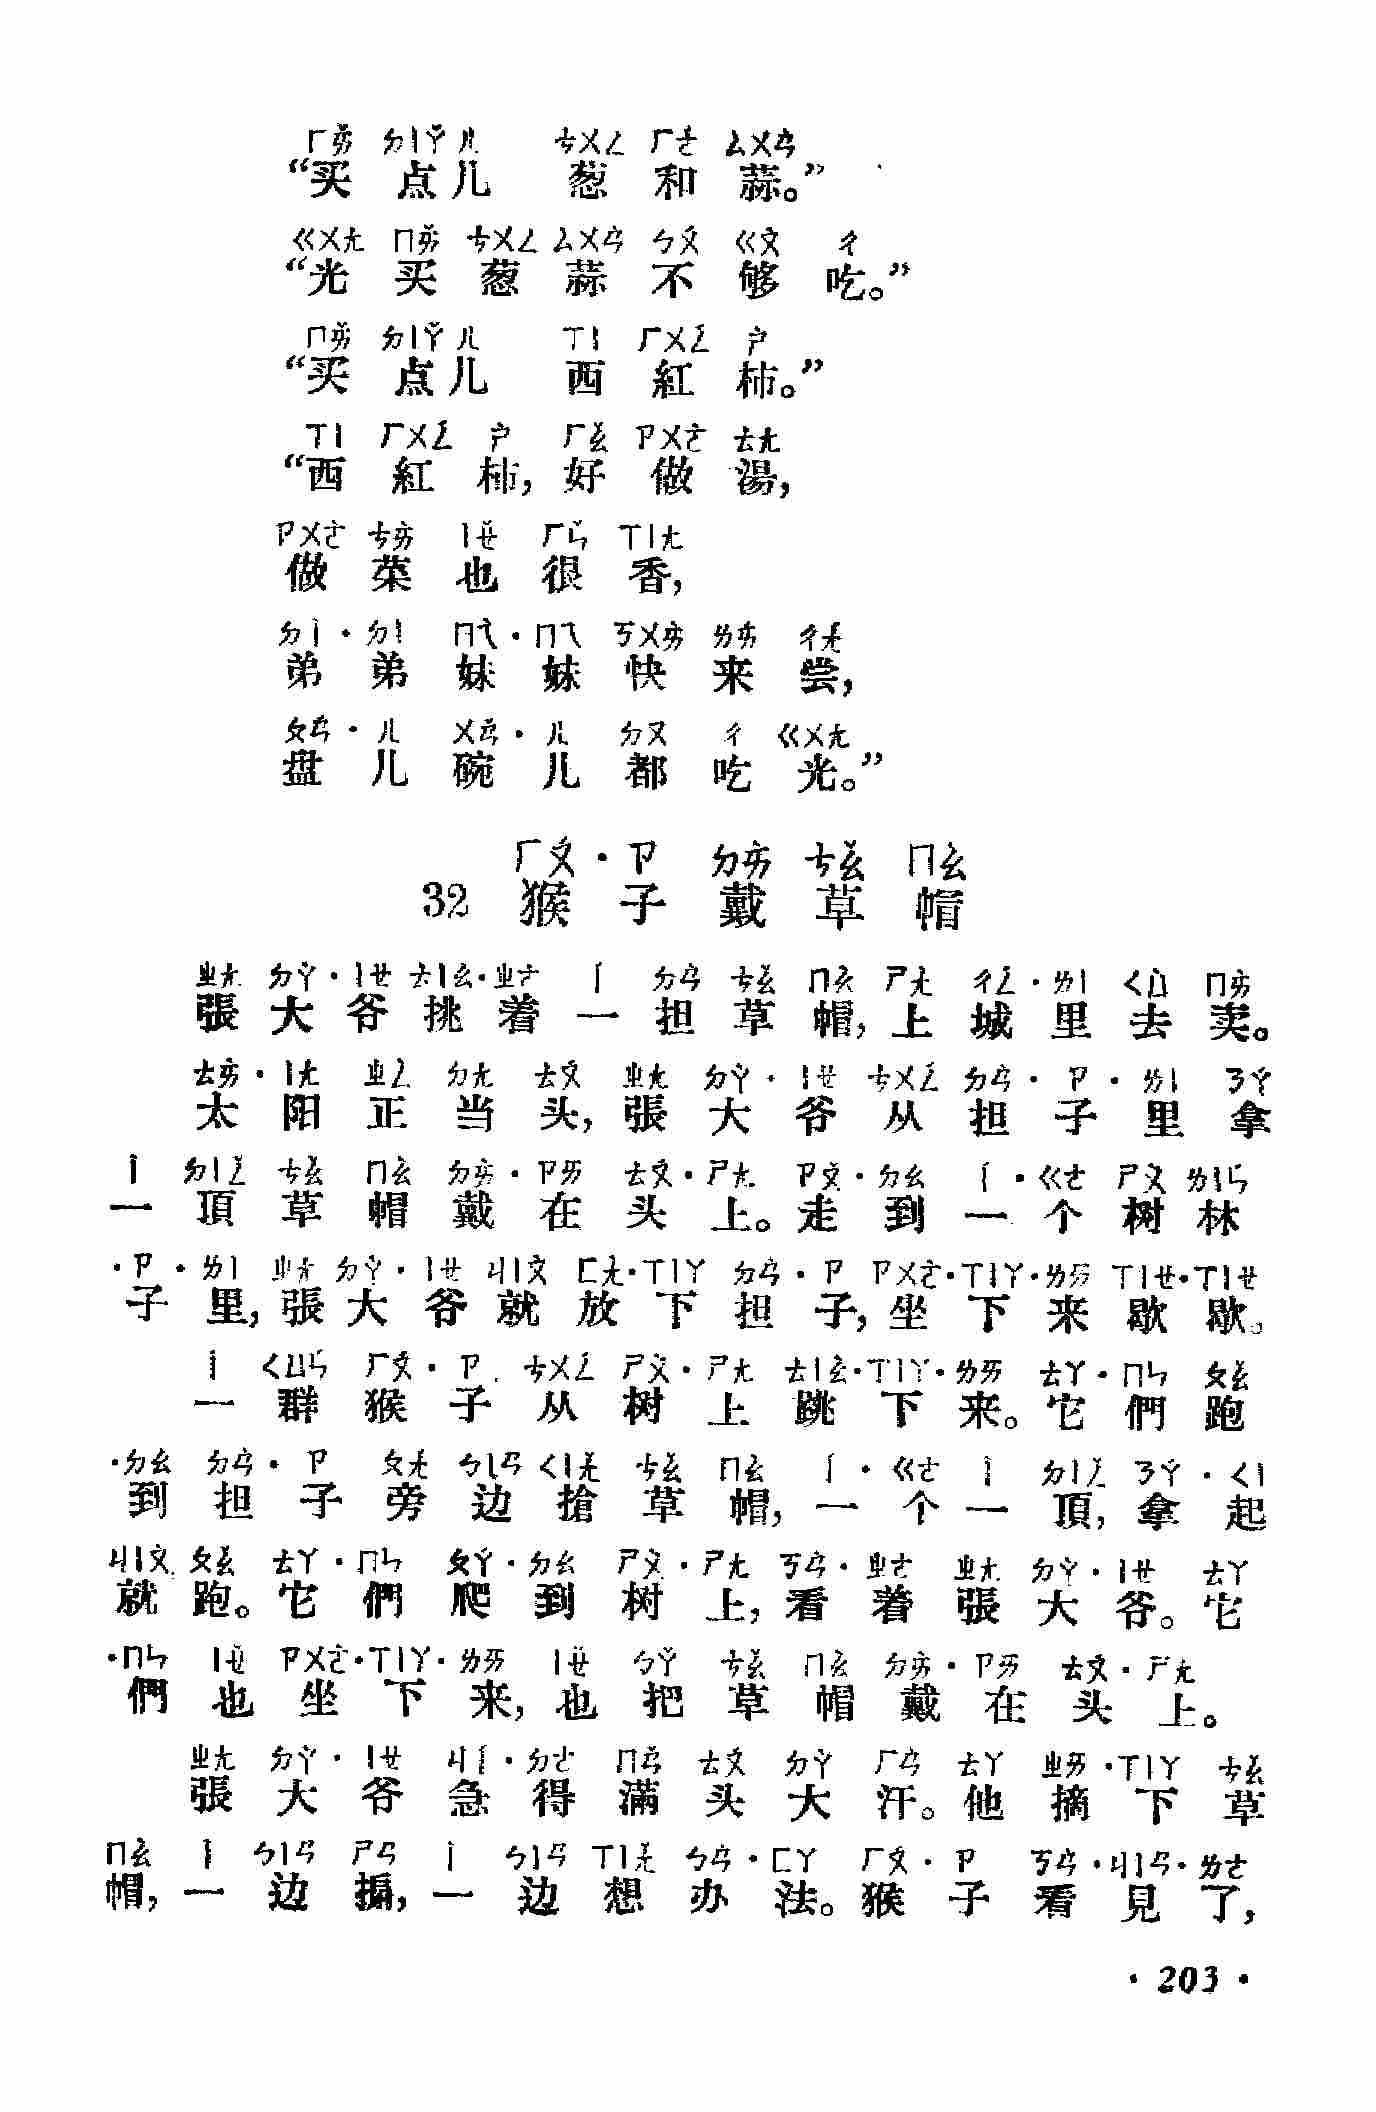 ㄏㄞˇ ㄉㄧㄚˇㄦ ㄘㄨㄥ ㄏㄜˊ ㄙㄨㄢˋ
“买点儿葱和蒜。”
ㄍㄨㄤ ㄇㄞˇ ㄘㄨㄥ ㄙㄨㄢˋ ㄅㄨˊ ㄍㄡˋ ㄔ
“光买葱蒜不够吃。”
ㄇㄞˇ ㄉㄧㄚˇㄦ ㄒㄧ ㄏㄨㄥˊ ㄕˋ
“买点儿西紅柿。”
ㄒㄧ ㄏㄨㄥˊ ㄕˋ ㄏㄠˇ ㄗㄨㄛˋ ㄊㄤ
“西紅柿，好做湯，
ㄗㄨㄛˋ ㄘㄞˋ ㄧㄝˇ ㄏㄣˇ ㄒㄧㄤ
做菜也很香，
ㄉㄧˋ·ㄉㄧ ㄇㄟˋ·ㄇㄟ ㄎㄨㄞˋ ㄌㄞˊ ㄔㄤˊ
弟弟妹妹快来尝，
ㄆㄢˊ·ㄦ ㄨㄢˇ·ㄦ ㄉㄡ ㄔ ㄍㄨㄤ
盘儿碗儿都吃光。”
ㄏㄡˊ·ㄗ ㄉㄞˋ ㄘㄠˇ ㄇㄠˋ
32 猴子戴草帽
ㄓㄤ ㄉㄚˋ·ㄧㄝ ㄊㄧㄠ·ㄓㄜ ㄧˊ ㄉㄢˋ ㄘㄠˇ ㄇㄠˋ ㄕㄤˋ ㄔㄥˊ·ㄌㄧ ㄑㄩˋ ㄇㄞˋ
張大爷挑着一担草帽，上城里去卖。
ㄊㄞˋ·ㄧㄤ ㄓㄥˋ ㄉㄤ ㄊㄡˊ ㄓㄤ ㄉㄚˋ·ㄧㄝ ㄘㄨㄥˊ ㄉㄢˋ·ㄗ·ㄌㄧ ㄋㄚˊ
太阳正当头，張大爷从担子里拿
ㄧˋ ㄉㄧㄥˇ ㄘㄠˇ ㄇㄠˋ ㄉㄞˋ·ㄗㄞ ㄊㄡˊ·ㄕㄤ ㄗㄡˇ·ㄉㄠ ㄧˊ·ㄍㄜ ㄕㄨˋ ㄌㄧㄣˊ
一頂草帽戴在头上。走到一个树林
·ㄗ·ㄌㄧ ㄓㄤ ㄉㄚˋ·ㄧㄝ ㄐㄧㄡˋ ㄈㄤˋ·ㄒㄧㄚ ㄉㄢˋ·ㄗ ㄗㄨㄛˋ·ㄒㄧㄚ·ㄌㄞ ㄒㄧㄝ·ㄒㄧㄝ
子里，張大爷就放下担子，坐下来歇歇。
ㄧˋ ㄑㄩㄣˊ ㄏㄡˊ·ㄗ ㄘㄨㄥˊ ㄕㄨˋ·ㄕㄤ ㄊㄧㄠˋ·ㄒㄧㄚ·ㄌㄞ ㄊㄚ·ㄇㄣ ㄆㄠˇ
一群猴子从树上跳下来。它們跑
·ㄉㄠ ㄉㄢˋ·ㄗ ㄆㄤˊ ㄅㄧㄢ ㄑㄧㄤˇ ㄘㄠˇ ㄇㄠˋ ㄧˊ·ㄍㄜ ㄧˋ ㄉㄧㄥˇ ㄋㄚˊ·ㄑㄧ
到担子旁边搶草帽，一个一頂，拿起
ㄐㄧㄡˋ ㄆㄠˇ ㄊㄚ·ㄇㄣ ㄆㄚˊ·ㄉㄠ ㄕㄨˋ·ㄕㄤ ㄎㄢˋ·ㄓㄜ ㄓㄤ ㄉㄚˋ·ㄧㄝ ㄊㄚ
就跑。它們爬到树上，看着張大爷。它
·ㄇㄣ ㄧㄝˇ ㄗㄨㄛˋ·ㄒㄧㄚ·ㄌㄞ ㄧㄝˇ ㄅㄚˇ ㄘㄠˇ ㄇㄠˋ ㄉㄞˋ·ㄗㄞ ㄊㄡˊ·ㄕㄤ
們也坐下来，也把草帽戴在头上。
ㄓㄤ ㄉㄚˋ·ㄧㄝ ㄐㄧˊ·ㄉㄜ ㄇㄢˇ ㄊㄡˊ ㄉㄚˋ ㄏㄢˋ ㄊㄚ ㄓㄞ·ㄒㄧㄚ ㄘㄠˇ
張大爷急得满头大汗。他摘下草
ㄇㄠˋ ㄧˋ ㄅㄧㄢ ㄕㄢ ㄧˋ ㄅㄧㄢ ㄒㄧㄤˇ ㄅㄢˋ·ㄈㄚ ㄏㄡˊ·ㄗ ㄎㄢˋ·ㄐㄧㄢ·ㄌㄜ
帽，一边搧，一边想办法。猴子看見了，
· 203 ·